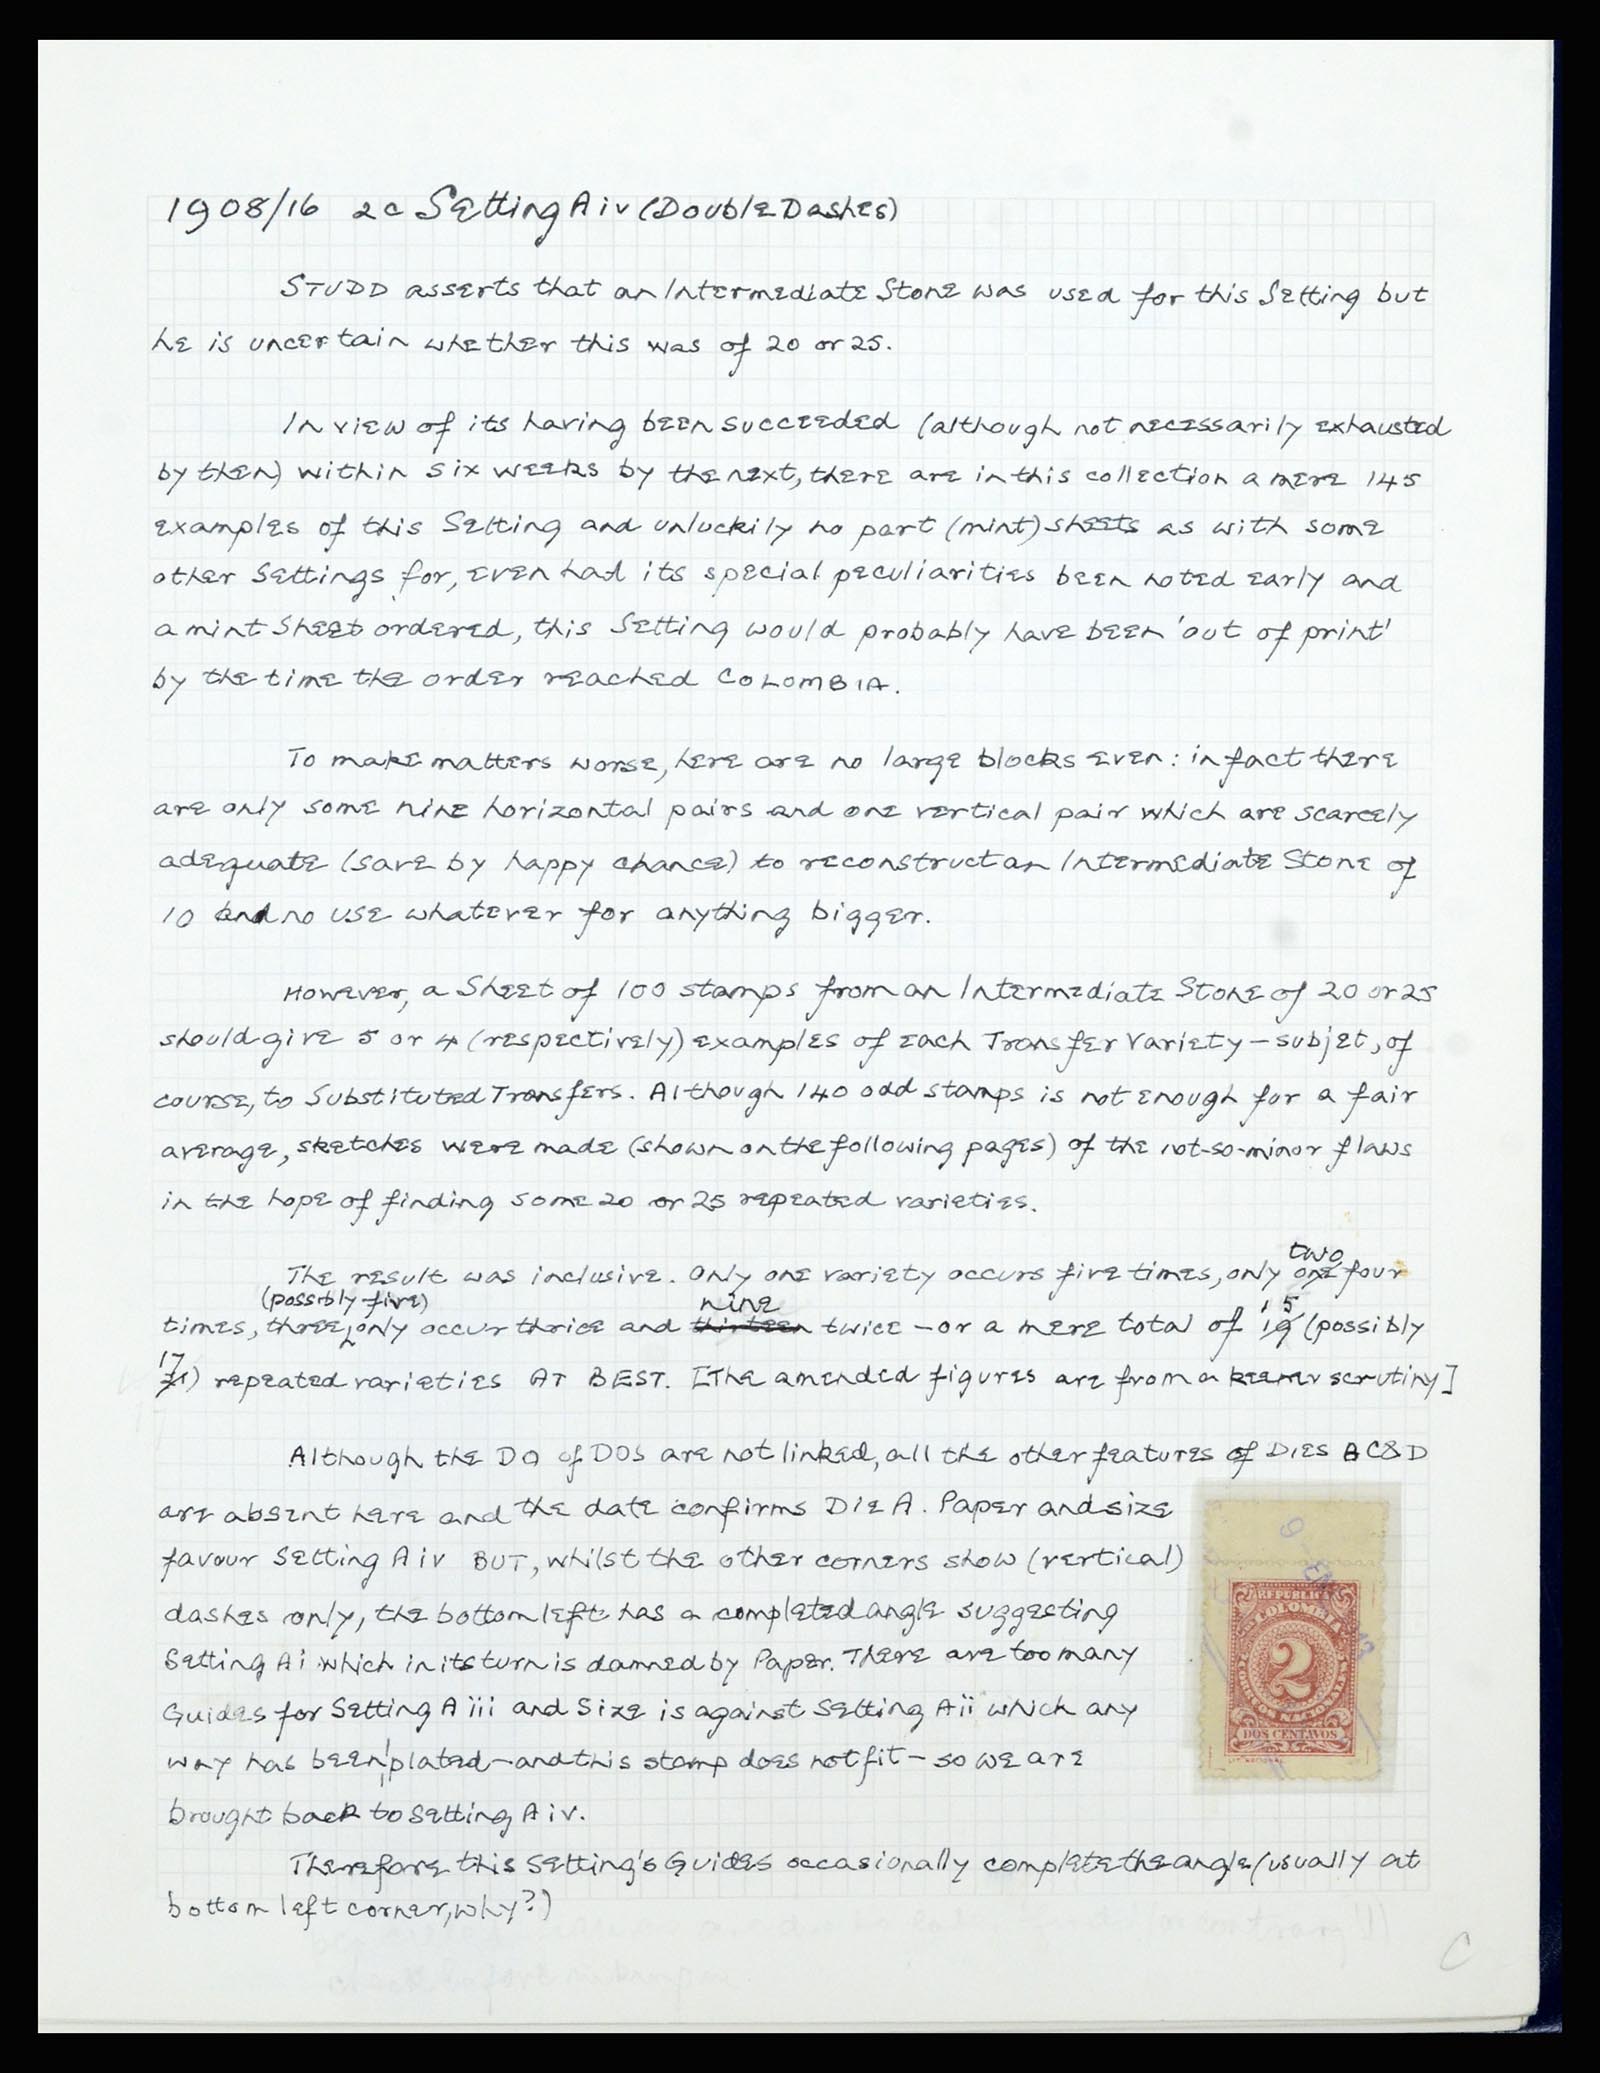 1908/16 2c Setting A iv (Double Dashes)
STUDD asserts that an Intermediate Stone was used for this Setting but
he is uncertain whether this was of 20 or 25.
In view of its having been succeeded (although not necessarily exhausted
by then) within six weeks by the next, there are in this collection a mere 145
examples of this Setting and unluckily no part (mint) sheets as with some
other Settings for, even had its special peculiarities been noted early and
a mint Sheet ordered, this Setting would probably have been 'out of print'
by the time the order reached COLOMBIA.
To make matters worse, here are no large blocks even: in fact there
are only some nine horizontal pairs and one vertical pair which are scarcely
adequate (save by happy chance) to reconstruct an Intermediate Stone of
10 and no use whatever for anything bigger.
However, a Sheet of 100 stamps from an Intermediate Stone of 20 or 25
should give 5 or 4 (respectively) examples of each Transfer Variety – subjet, of
course, to Substituted Transfers. Although 140 odd stamps is not enough for a fair
average, sketches were made (shown on the following pages) of the not-so-minor flaws
in the hope of finding some 20 or 25 repeated varieties.
two
The result was inclusive. Only one variety occurs five times, only one four
(possibly five) nine 15
times, three only occur thrice and thirteen twice – or a mere total of 19 (possibly
17
21) repeated varieties AT BEST. [The amended figures are from a keener scrutiny]
Although the DO of DOS are not linked, all the other features of Dies B C & D
are absent here and the date confirms Die A. Paper and size
favour Setting A iv BUT, whilst the other corners show (vertical)
dashes only, the bottom left has a completed angle suggesting
Setting A i which in its turn is damned by Paper. There are too many
Guides for Setting A iii and Size is against Setting A ii which any
way has been plated – and this stamp does not fit – so we are
brought back to Setting A iv.
Therefore this Setting's Guides occasionally complete the angle (usually at
bottom left corner, why?)
REPUBLICA
COLOMBIA
CORREOS NACIONALES
2
DOS CENTAVOS
LIT. NACIONAL
C